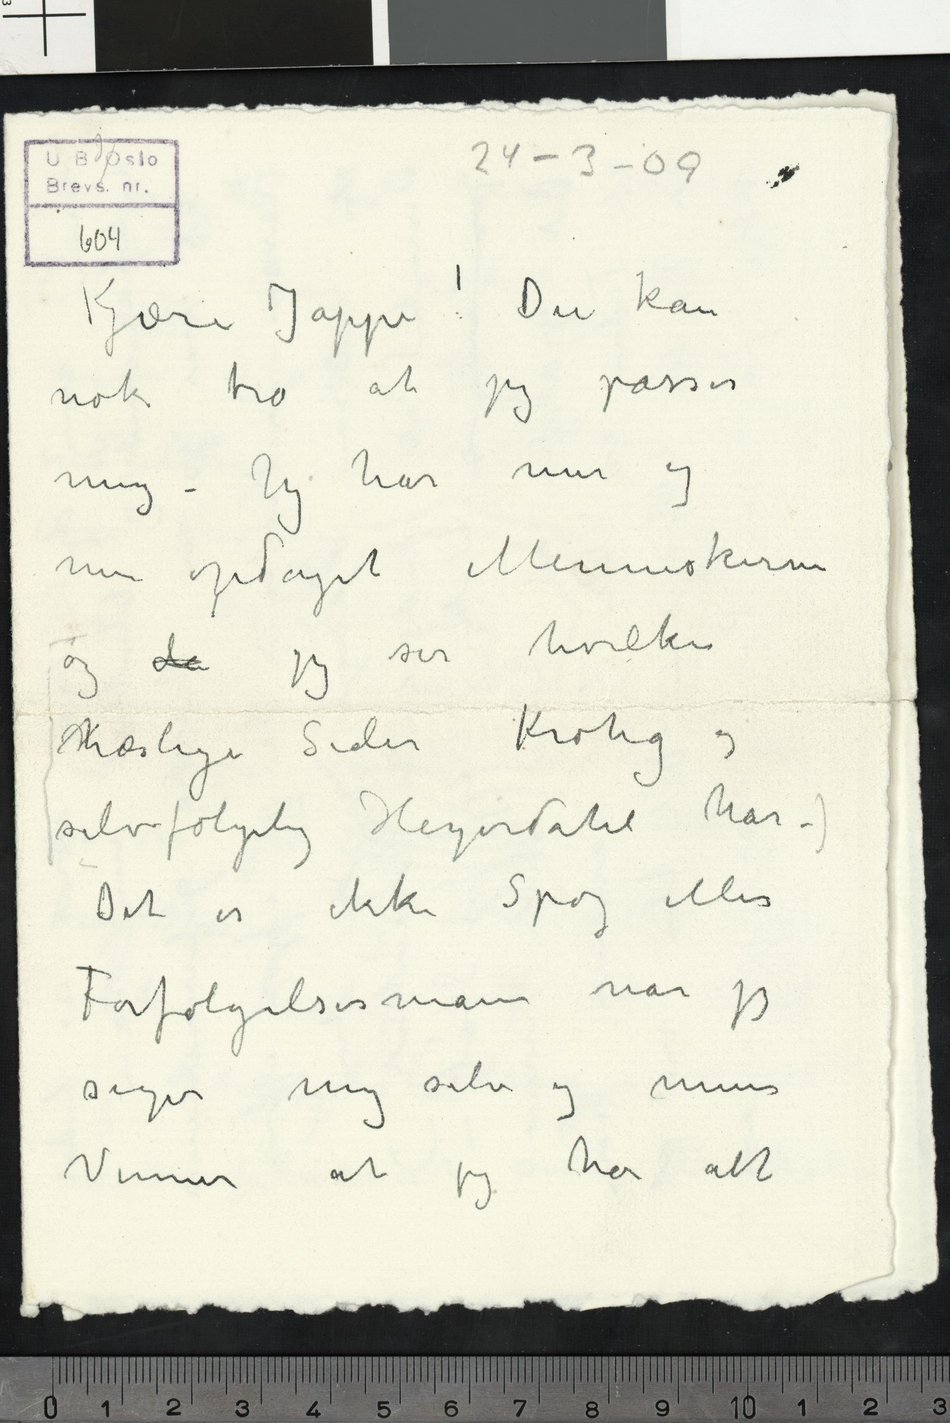 U B Oslo
Brevs. nr.
604
24-3-09
Kjære Jappe! Du kan
nok tro at jeg passer
mig – Jeg har mer og
mer opdaget Menneskerne
og da jeg ser hvilke
hæslige Sider Krohg og
selvfølgelig Heyerdahl har –)
Det er ikke Spøg eller
Forfølgelsesmani nar jeg
siger mig selv og mine
Venner at jeg har alt
0 1 2 3 4 5 6 7 8 9 10 1 2 3